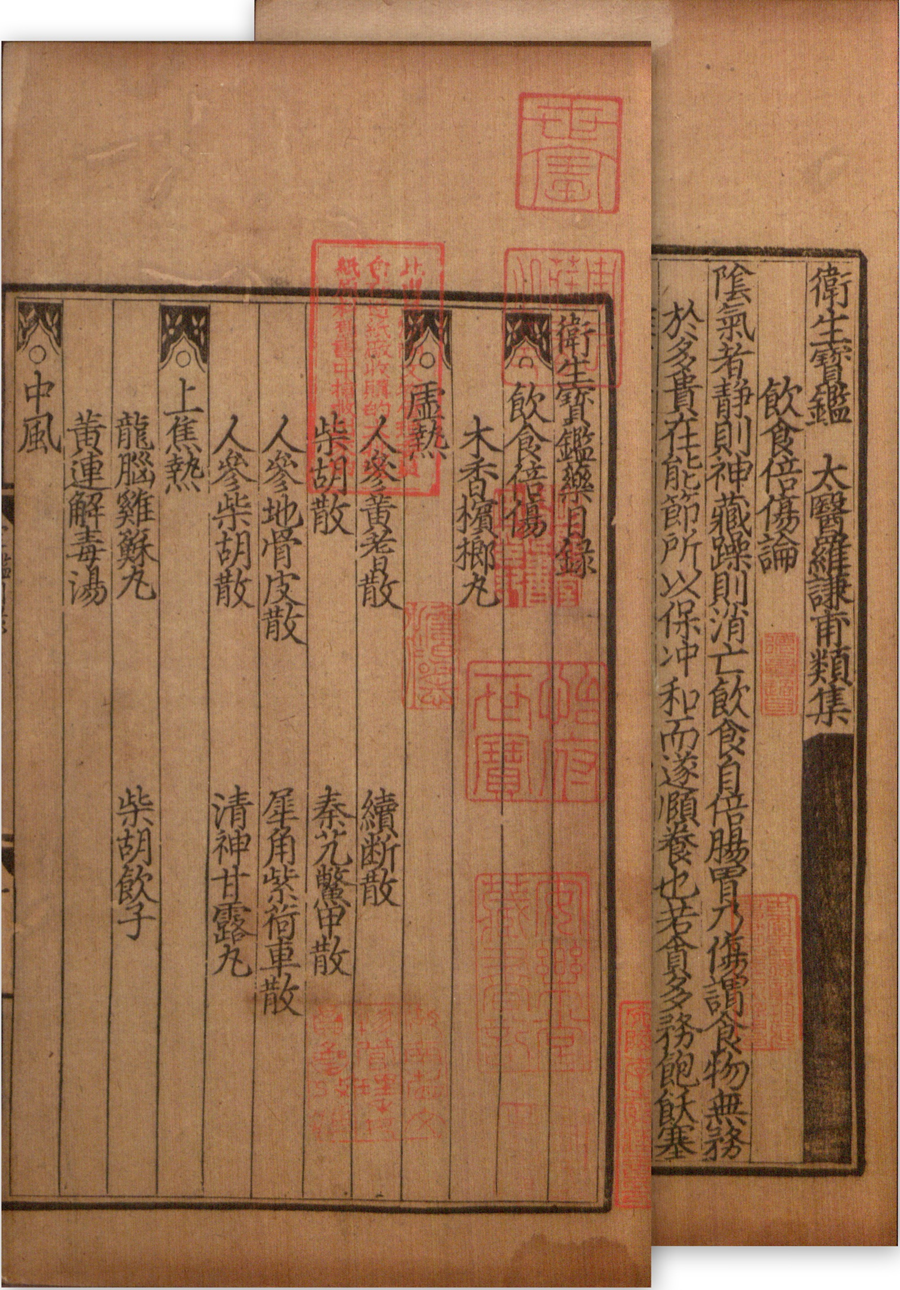 衛生寶鑑　太醫羅謙甫類集
飲食倍傷論
陰氣者静則神藏躁則消亡飲食自倍腸胃乃傷謂食物無務
於多貴在能節所以保冲和而遂頤養也若貪多務飽飫塞
衛生寶鑑藥目錄
○飲食倍傷
木香檳榔丸
○虛熱
人參黃耆散　續断散
柴胡散　秦艽鱉甲散
人參地骨皮散　犀角紫荷車散
人參柴胡散　清神甘露丸
○上焦熱
龍腦雞蘇丸　柴胡飲子
黃連解毒湯
○中風
怡府世寶
安樂堂藏書記